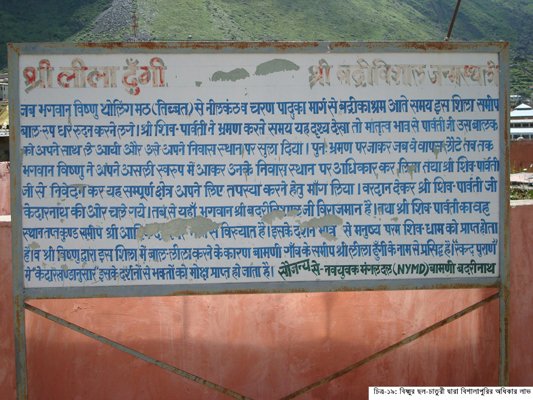 श्री लीला ढुँगी श्री बद्रीविशाल जन्मस्थान
जब भगवान विष्णु थोलिंग मठ (तिब्बत) से नीलकंठव चरण पादुका मार्ग से बद्रीकाश्रम आते समय इस शिला समीप
बाल-रुप धरे रुदन करने लगे। श्री शिव-पार्वती ने भ्रमण करते समय यह दृश्य देखा तो मातृत्व भाव से पार्वती जी उस बालक
को अपने साथ ले आयी और उसे अपने निवास स्थान पर सुला दिया। पुनः भ्रमण पर जाकर जब वे वापस लौटे तब तक
भगवान विष्णु ने अपने असली स्वरुप में आकर उनके निवास स्थान पर अधिकार कर लिया तथा श्री शिव-पार्वती
जी से निवेदन कर यह सम्पूर्ण क्षेत्र अपने लिए तपस्या करने हेतु माँग लिया। बरदान देकर श्री शिव-पार्वती जी
केदारनाथ की ओर चले गये। तब से यहाँ भगवान श्री बदरीविशाल जी विराजमान है। तथा श्री शिव-पार्वती का वह
स्थान तप्तकुण्ड समीप श्री से विख्यात है। इसके दर्शन मात्र से मनुष्य परम शिव धाम को प्राप्त होता
है। व श्री विष्णु द्वारा इस शिला में बाल-लीला करने के कारण बामणी गाँव के समीप श्री लीला ढुँगी के नाम से प्रसिद्ध है। स्कन्द पुराण
में "केदारखण्डानुसार इसके दर्शनों से भक्तों को मोक्ष प्राप्त हो जाता है। सौजन्य से- नवयुवक मंगल दल (NYMD) बामणी बदरीनाथ
চিত্র-১৯: বিষ্ণুর ছল-চাতুরী দ্বারা বিশালাপুরির অধিকার লাভ